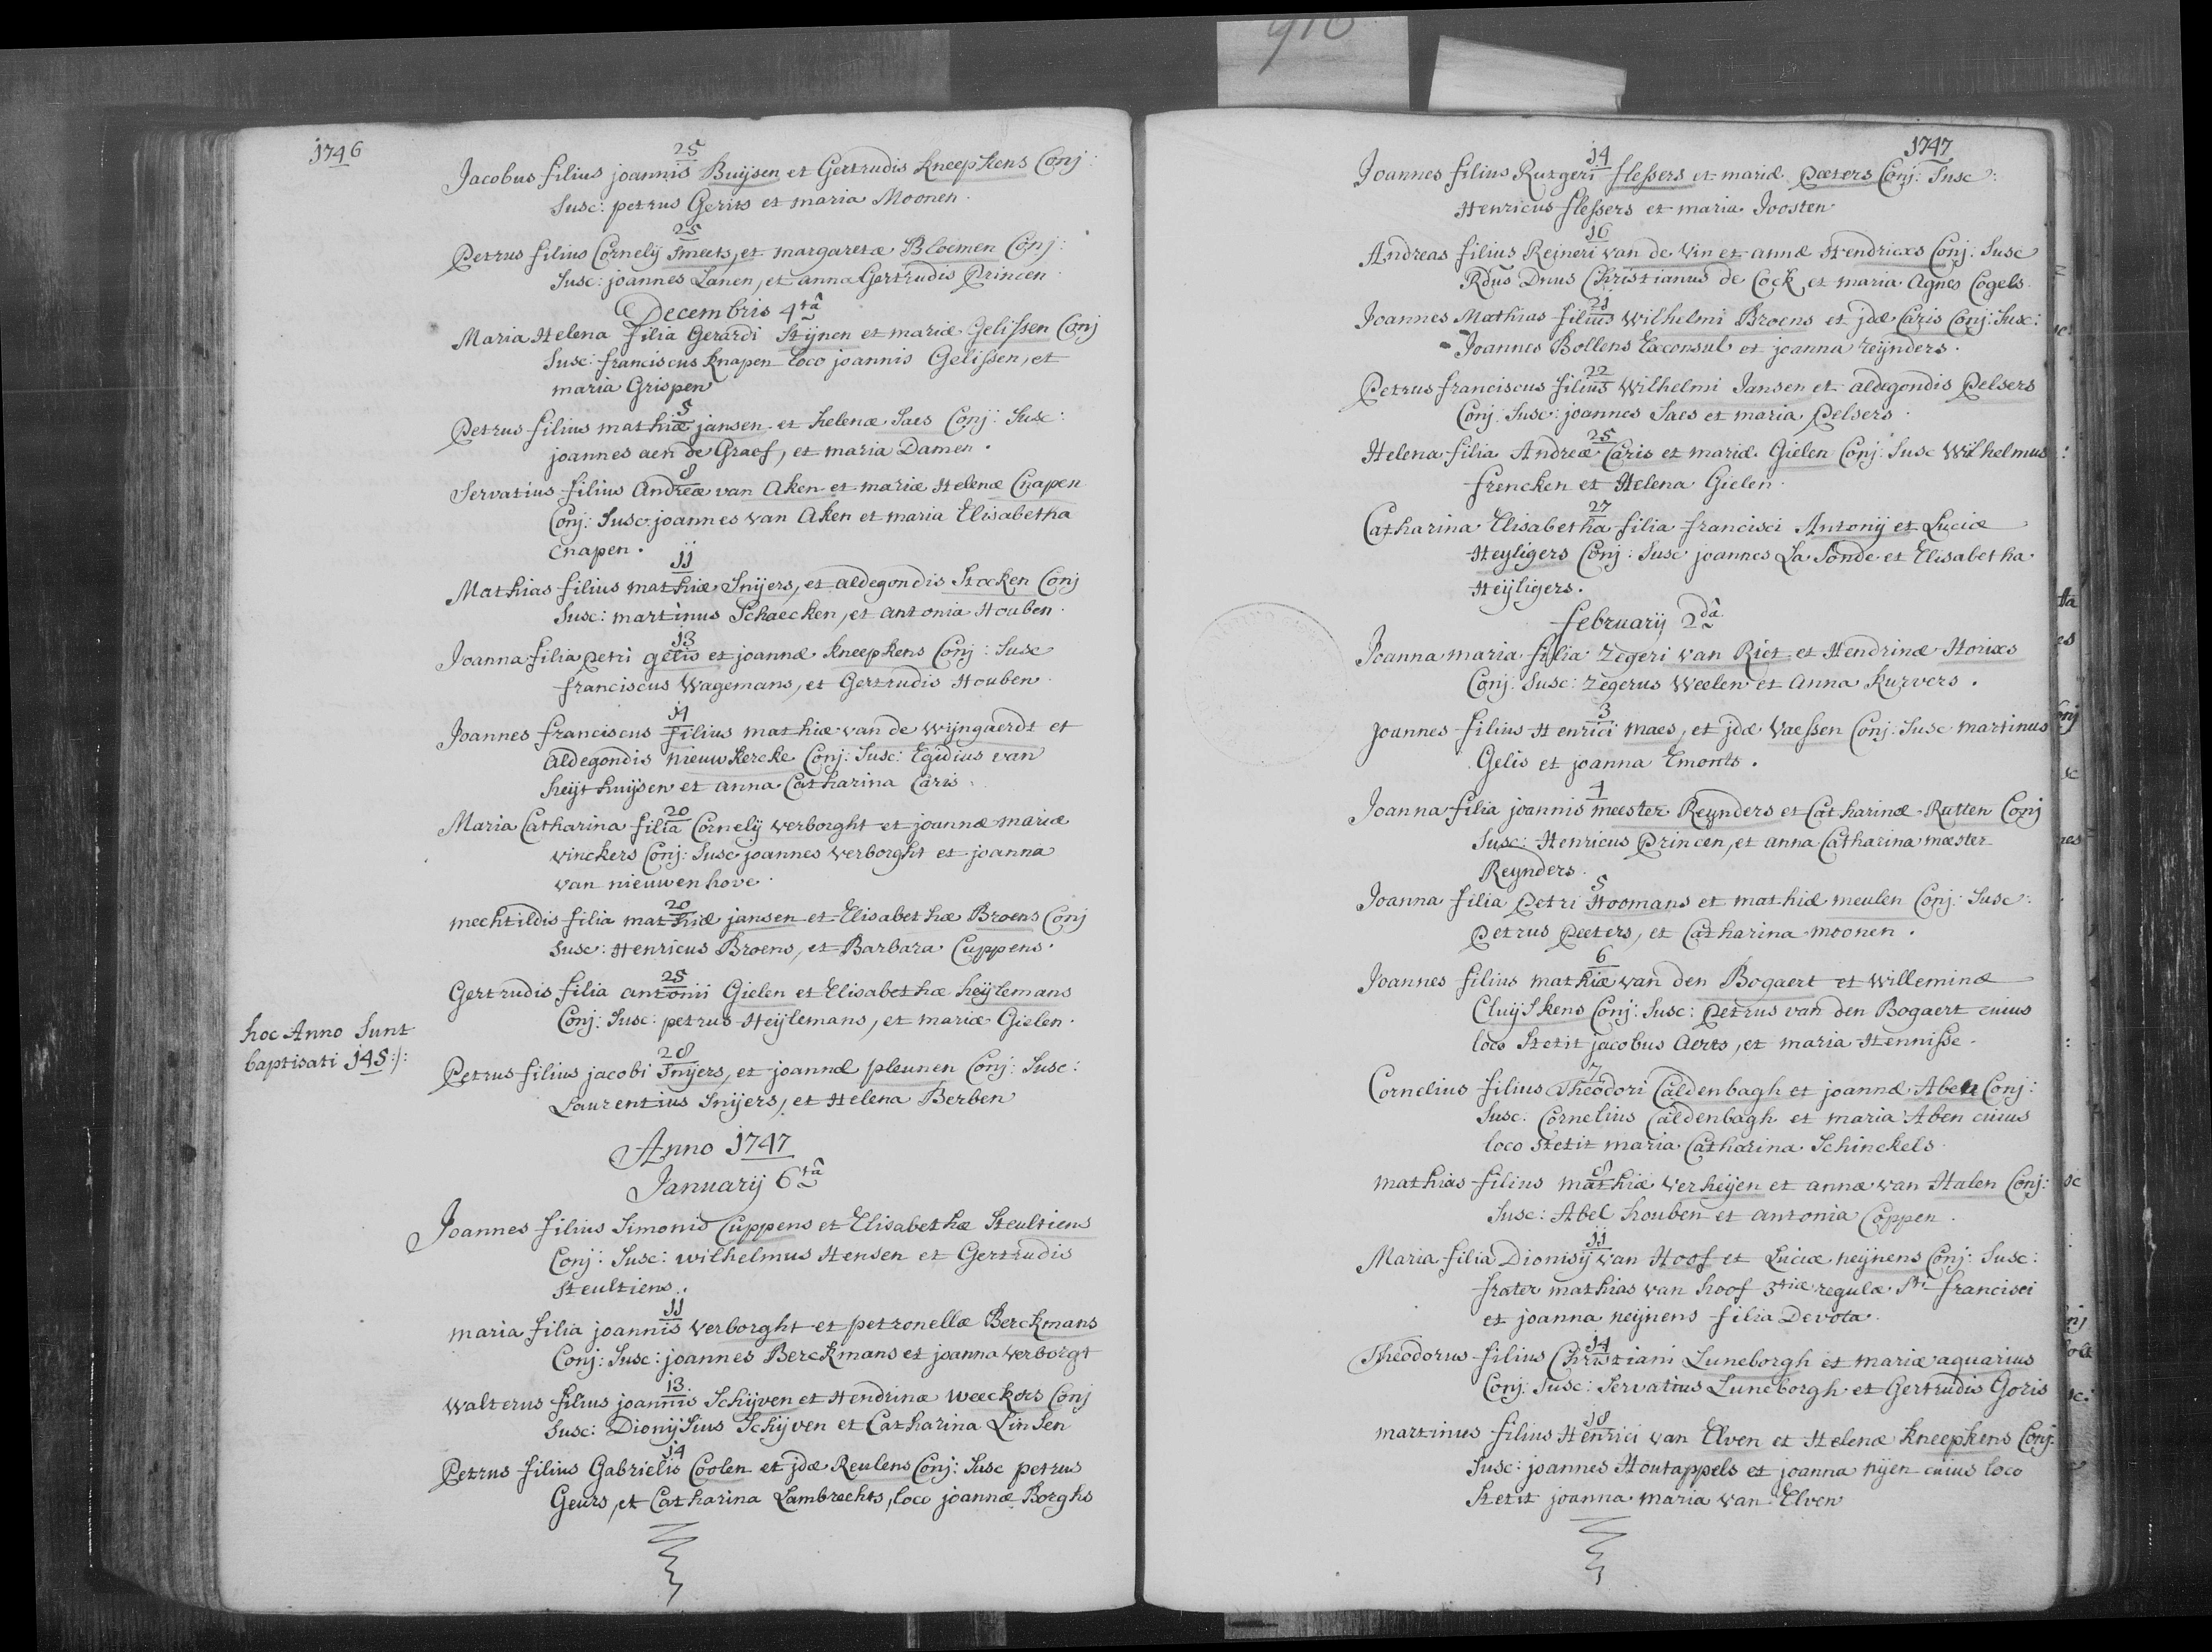 910
1746
25
Jacobus filius joannis Buijsen et Gertrudis Kneepkens Conj:
Susc: petrus Gerits et maria Moonen.
25
Petrus filius Cornelij Smeets, et margaretæ Bloemen Conj:
Susc: joannes Lanen, et anna Gertrudis Princen
Decembris 4tâ
Maria Helena filia Gerardi Stijnen et mariæ Gelissen Conj
Susc: franciscus Knapen loco joannis Gelissen, et
maria Grispen
5
Petrus filius mathiæ jansen et helenæ Saes Conj: Susc:
joannes aen de Graef, et maria Damen.
8
Servatius filius Andreæ van Aken et mariæ Helenæ Cnapen
Conj: Susc: joannes van Aken et maria Elisabetha
Cnapen.
11
Mathias filius mathiæ Snijers, et aldegondis Stocken Conj
Susc: martinus Schaecken, et antonia Houben.
13
Joanna filia petri gelis et joannæ Kneepkens Conj: Susc
franciscus Wagemans, et Gertrudis Houben.
14
Joannes franciscus filius mathiæ van de Wijngaerdt et
aldegondis nieuwkercke Conj: Susc: Egidius van
heijthuijsen et anna Catharina Caris.
20
Maria Catharina filia Cornelij verborght et joannæ mariæ
vinckers Conj: Susc joannes verborght et joanna
van nieuwenhove.
20
mechtildis filia mathiæ jansen et Elisabethæ Broens Conj
Susc: Henricus Broens, et Barbara Cuppens.
25
Gertrudis filia antonii Gielen et Elisabethæ heijlemans
Conj: Susc: petrus Heijlemans, et mariæ Gielen.
hoc Anno Sunt
baptisati 145:/:
28
Petrus filius jacobi Snijers, et joannæ pleunen Conj: Susc:
Laurentius Snijers, et Helena Berben
Anno 1747
Januarij 6tâ
Joannes filius Simonis Cuppens et Elisabethæ Steultiens
Conj: Susc: wilhelmus Hensen et Gertrudis
Steultiens.
11
maria filia joannis verborght et petronellæ Berckmans
Conj: Susc: joannes Berckmans et joanna verborgt
13
walterus filius joannis Schijven et Hendrinæ weeckers Conj
Susc: Dionijsius Schijven et Catharina Linsen
14
Petrus filius Gabrielis Coolen et jdæ Reulens Conj: Susc petrus
Geurs, et Catharina Lambrechts, loco joannæ Borghs
1747
14
Joannes filius Rutgeri flessers et mariæ Pæters Conj: Susc:
Henricus flessers et maria Joosten
16
Andreas filius Reineri van de Vin et annæ Hendricxs Conj: Susc
Rdus Dnus Christianus de Cock, et maria Agnes Cogels.
21
Joannes Mathias filius Wilhelmi Broens et jdæ Caris Conj: Susc:
Joannes Bollens Exconsul et joanna reijnders.
22
Petrus franciscus filius Wilhelmi Jansen et aldegondis Pelsers
Conj: Susc: joannes Saes et maria Pelsers.
25
Helena filia Andreæ Caris et mariæ Gielen Conj: Susc Wilhelmus
frencken et Helena Gielen.
27
Catharina Elisabetha filia francisci Antonij et Luciæ
Heyligers Conj: Susc joannes La Sonde et Elisabetha
Heijligers.
februarij 2dâ
Joanna maria filia Zegeri van Riet et Hendrinæ Horixs
Conj: Susc: zegerus Weelen et Anna Kurvers.
3
Joannes filius Henrici maes, et jdæ Vaessen Conj: Susc martinus
Gelis et joanna Emonts.
4
Joanna filia joannis meester Reijnders et Catharinæ Rutten Conj
Susc: Henricus Princen, et anna Catharina mæster
Reijnders.
5
Joanna filia Petri Hoomans et mathiæ meulen Conj: Susc:
Petrus Peeters, et Catharina moonen.
6
Joannes filius mathiæ van den Bogaert et Willeminæ
Cluijskens Conj: Susc: Petrus van den Bogaert cuius
loco Stetit jacobus Aerts, et maria Hennisse.
7
Cornelius filius Theodori Caldenbagh et joannæ Aben Conj:
Susc: Cornelius Caldenbagh et maria Aben cuius
loco Stetit maria Catharina Schinckels.
8
mathias filius mathiæ verheijen et annæ van Halen Conj:
Susc: Abel houben et antonia Coppen.
11
Maria filia Dionisij van Hoof et Luciæ neijnens Conj: Susc:
frater mathias van hoof 3tiæ regulæ Sti francisci
et joanna neijnens filia Devota.
14
Theodorus filius Christiani Luneborgh et mariæ aquarius
Conj: Susc: Servatius Luneborgh et Gertrudis Goris
18
martinus filius Henrici van Elven et Helenæ Kneepkens Conj:
Susc: joannes Houtappels et joanna nijen cuius loco
Stetit joanna maria van Elven